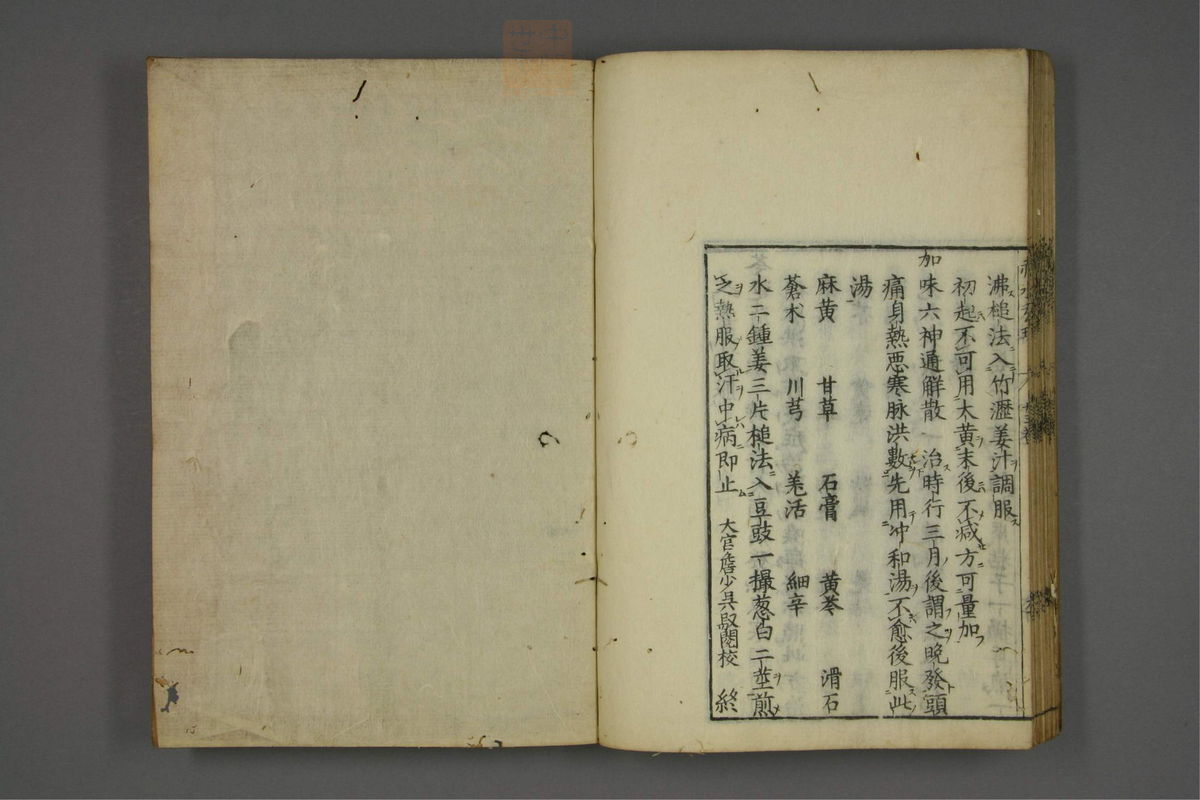 沸槌法入竹瀝姜汁調服
初起不可用大黄末後不減方可量加
加味六神通解散 治時行三月後謂之晚發頭
痛身熱惡寒脉洪數先用冲和湯不愈後服此
湯
麻黄 甘草 石膏 黄芩 滑石
蒼朮 川芎 羗活 細辛
水二鍾姜三片槌法入豆豉一撮葱白二莖煎
之熱服取汗中病即止 大官詹少吳殷閣校 終